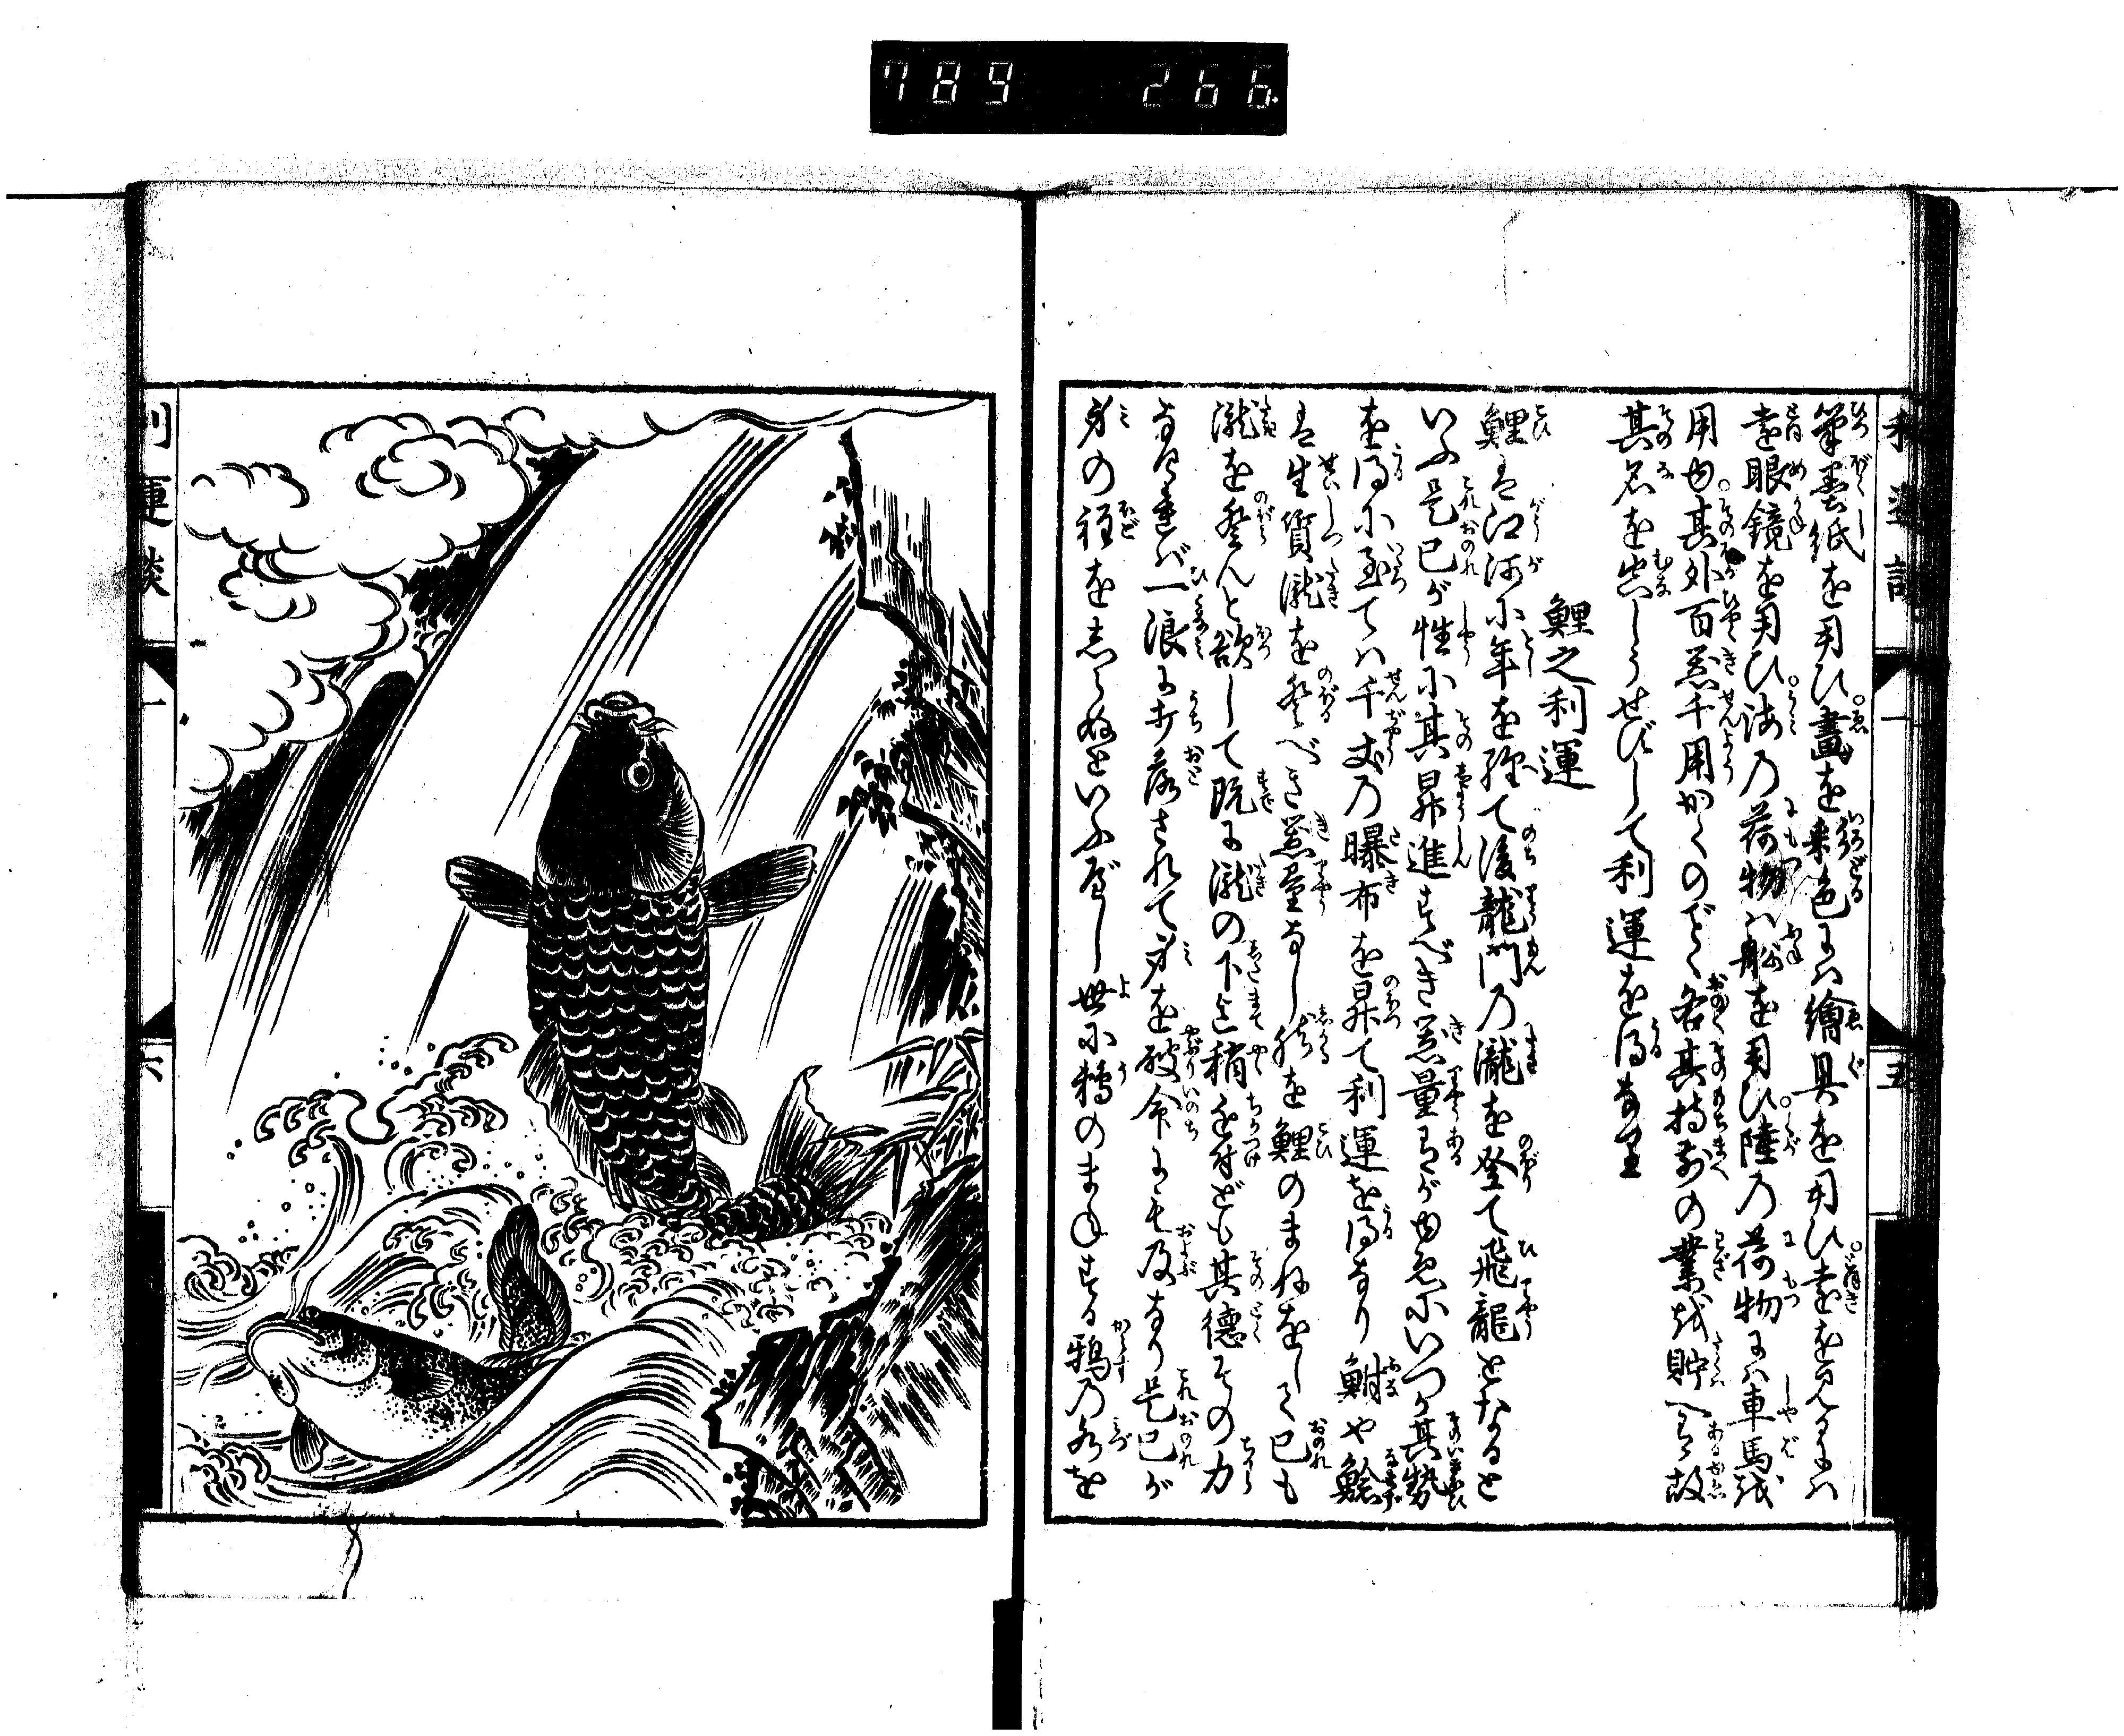 789 266
利運談 一 五
筆墨紙を用ひ。畫を彩色には繪具を用ひ。遠を見るには
遠眼鏡を用ひ。海の荷物は船を用ひ。陸の荷物には車馬を
用ゆ。其外百器千用かくのごとく各其持前の業を貯へる故
其名を空しうせずして利運を得るなり
鯉之利運
鯉は江河に年を經て後龍門の瀧を登て飛龍となると
いふ是己が性に其昇進すべき器量有がゆゑにいつか其勢
を得に至ては千丈の曝布を昇て利運を得なり鮒や鯰
は生質瀧を登べき器量なし然を鯉のまねをして己も
瀧を登んと欲して既に瀧の下迄稍近付ども其德その力
なければ一浪に打落されて身を破命にも及なり是己が
身の程をしらぬといふべし世に鵜のまねする鴉の水を
利運談 一 六